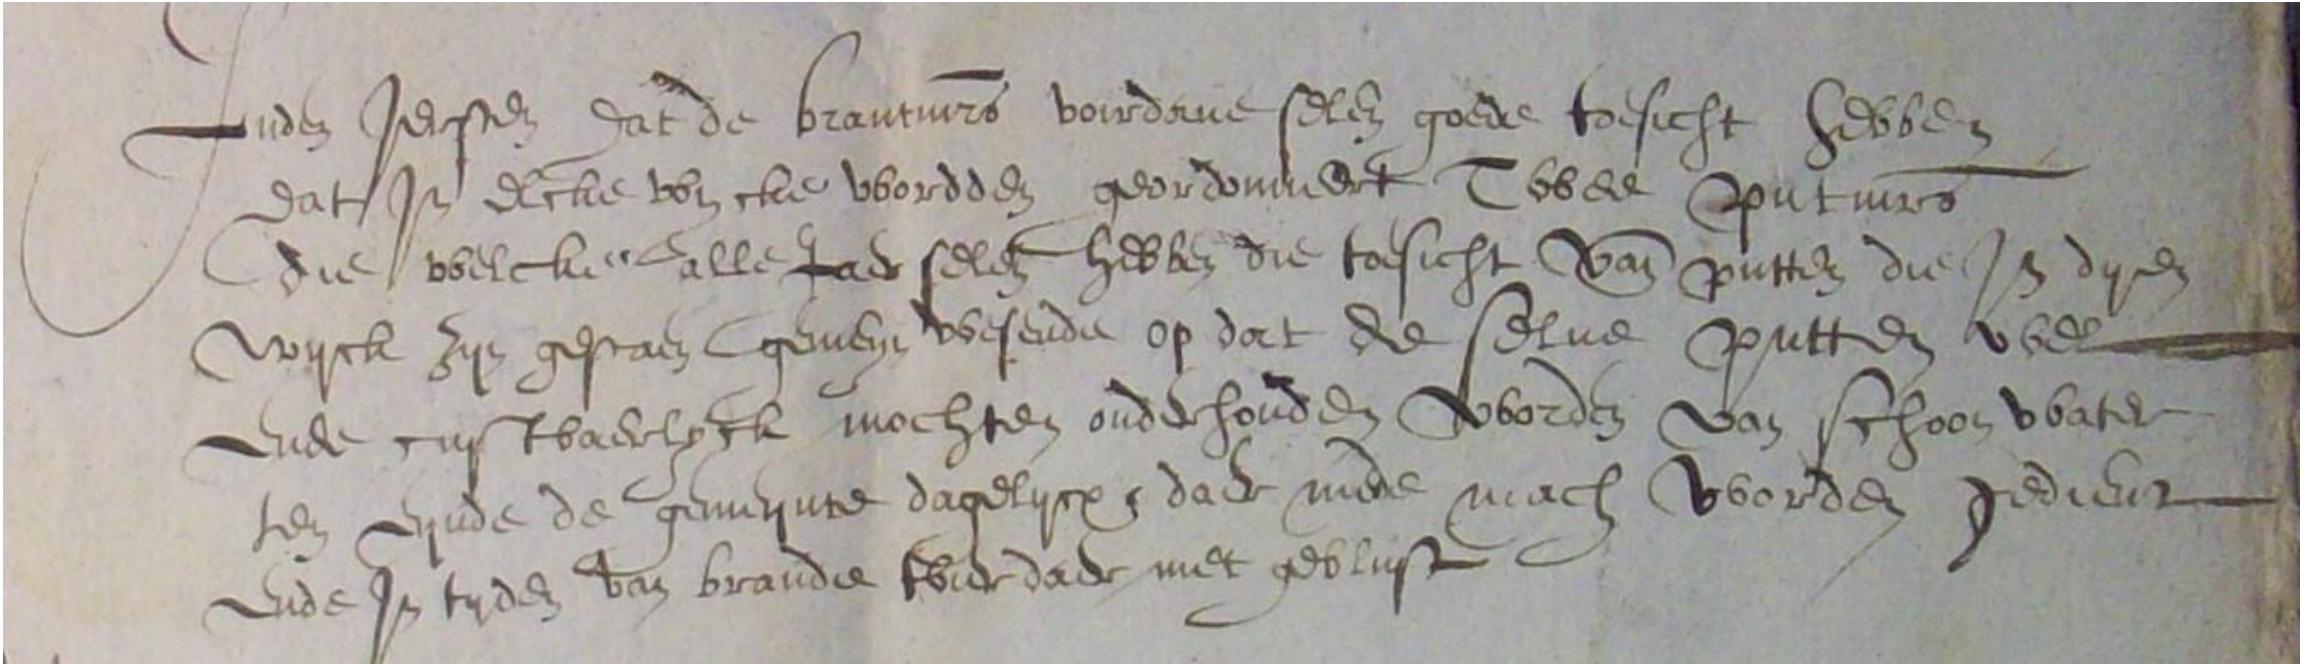 Inden Iersten dat de brantmrs voirdane selen goede toesicht hebben
dat In elcke wycke woordden geordonneert Twee putmrs
die welcke alle Jaer selen hebben die toesicht van putten die In dyen
wyck zyn gestaen gemeyn wesende op dat de selue putten wel
ende custbaerlyck mochten onderhouden woorden van schoon water
ten eynde de gemeynte dagelycx daer mede mach woorden gedient
ende In tyden van brande tvier daer met geblust